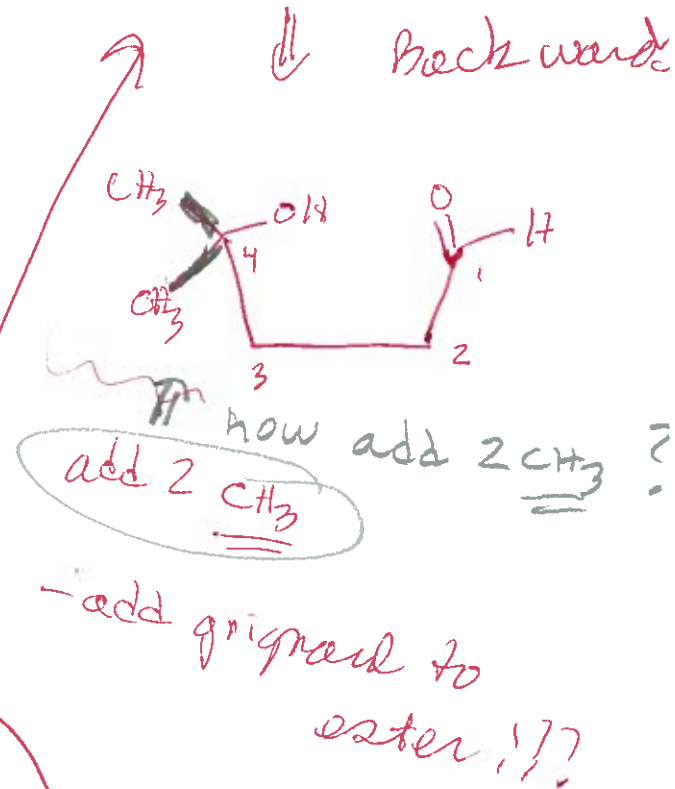 Backwards
CH3 OH O H
4 1
CH3
3 2
how add 2 CH3 ?
add 2 CH3
- add grignard to
ester !!?